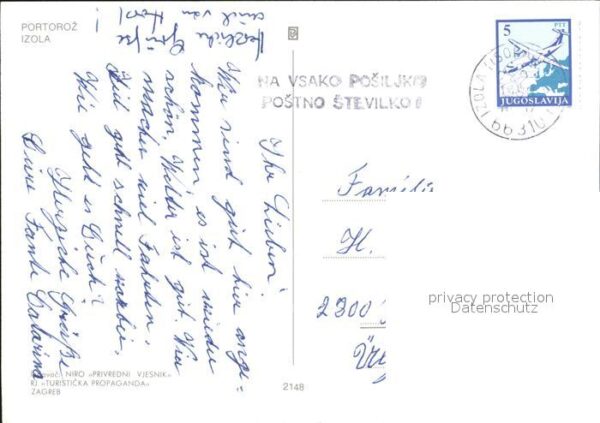 PORTOROŽ
IZOLA
Herzliche
Grüße
auch von
Horst
!
Ihr Lieben!
Wir sind gut hier ange=
kommen, es ist wieder
schön. Wetter ist gut. Wir
machen viel Fahrten.
Zeit geht schnell vorbei.
Wie geht es Euch?
Herzliche Grüße
Eure Tante Catarina
NA VSAKO POŠILJKO
POŠTNO ŠTEVILKO!
5
PTT
JUGOSLAVIJA
66310 IZOLA
Famili
H.
2300
privacy protection
Datenschutz
NIRO »PRIVREDNI VJESNIK«
RJ »TURISTIČKA PROPAGANDA«
ZAGREB
2148